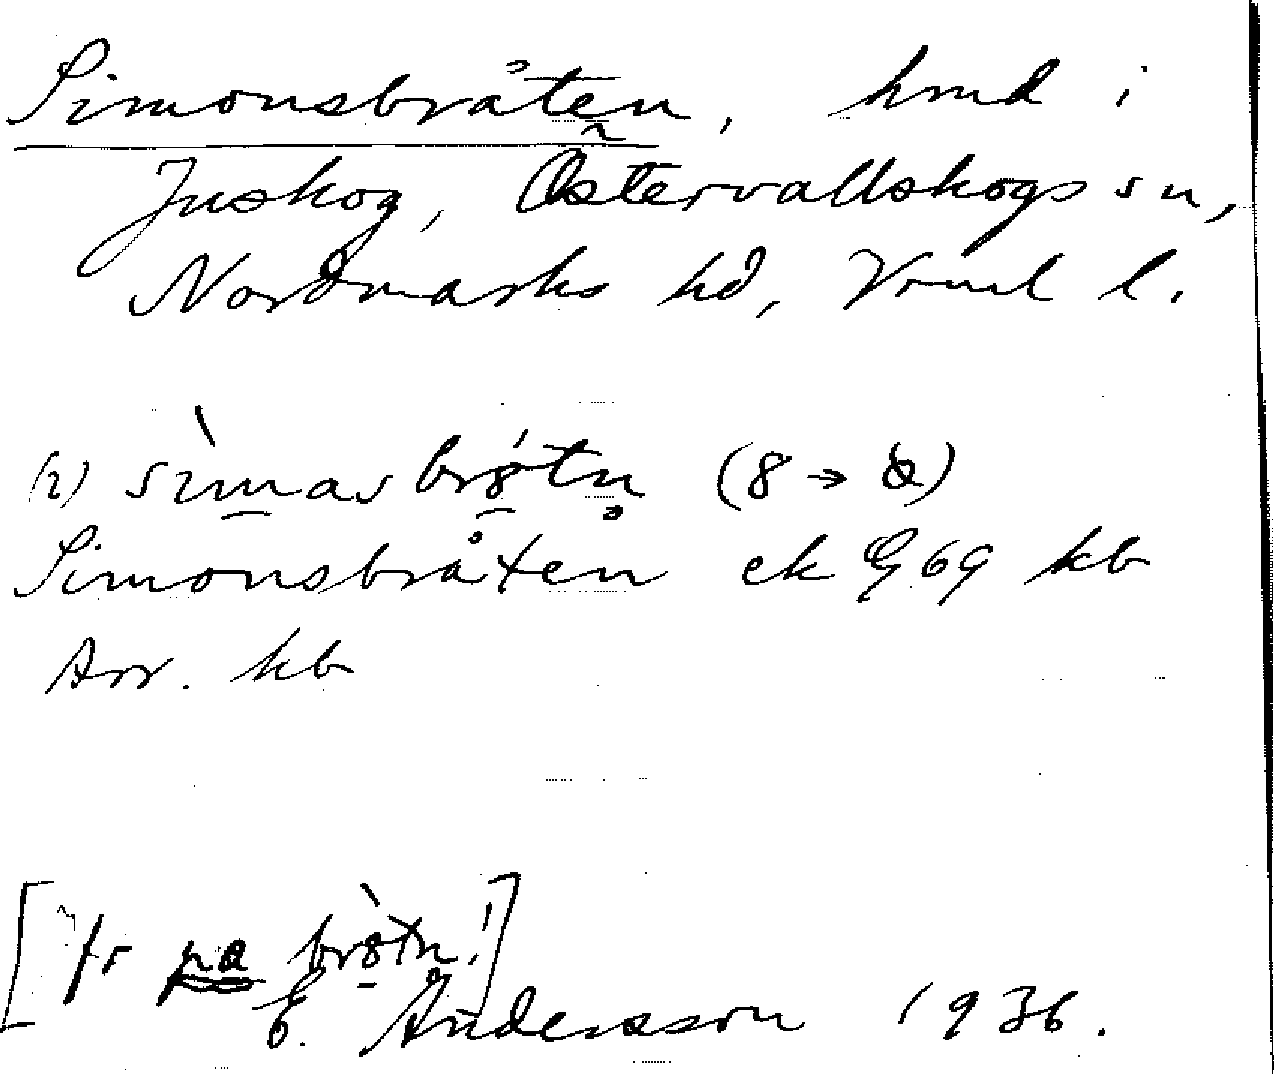 Simonsbråten, hmd i
Juskog, Östervallskogs sn,
Nordmarks hd, Vrml l.
simas brøtn (8 →
Simonsbråten ek G69 kb
Arr. kb
[fr på brøtn!]
E. Andersson 1936.